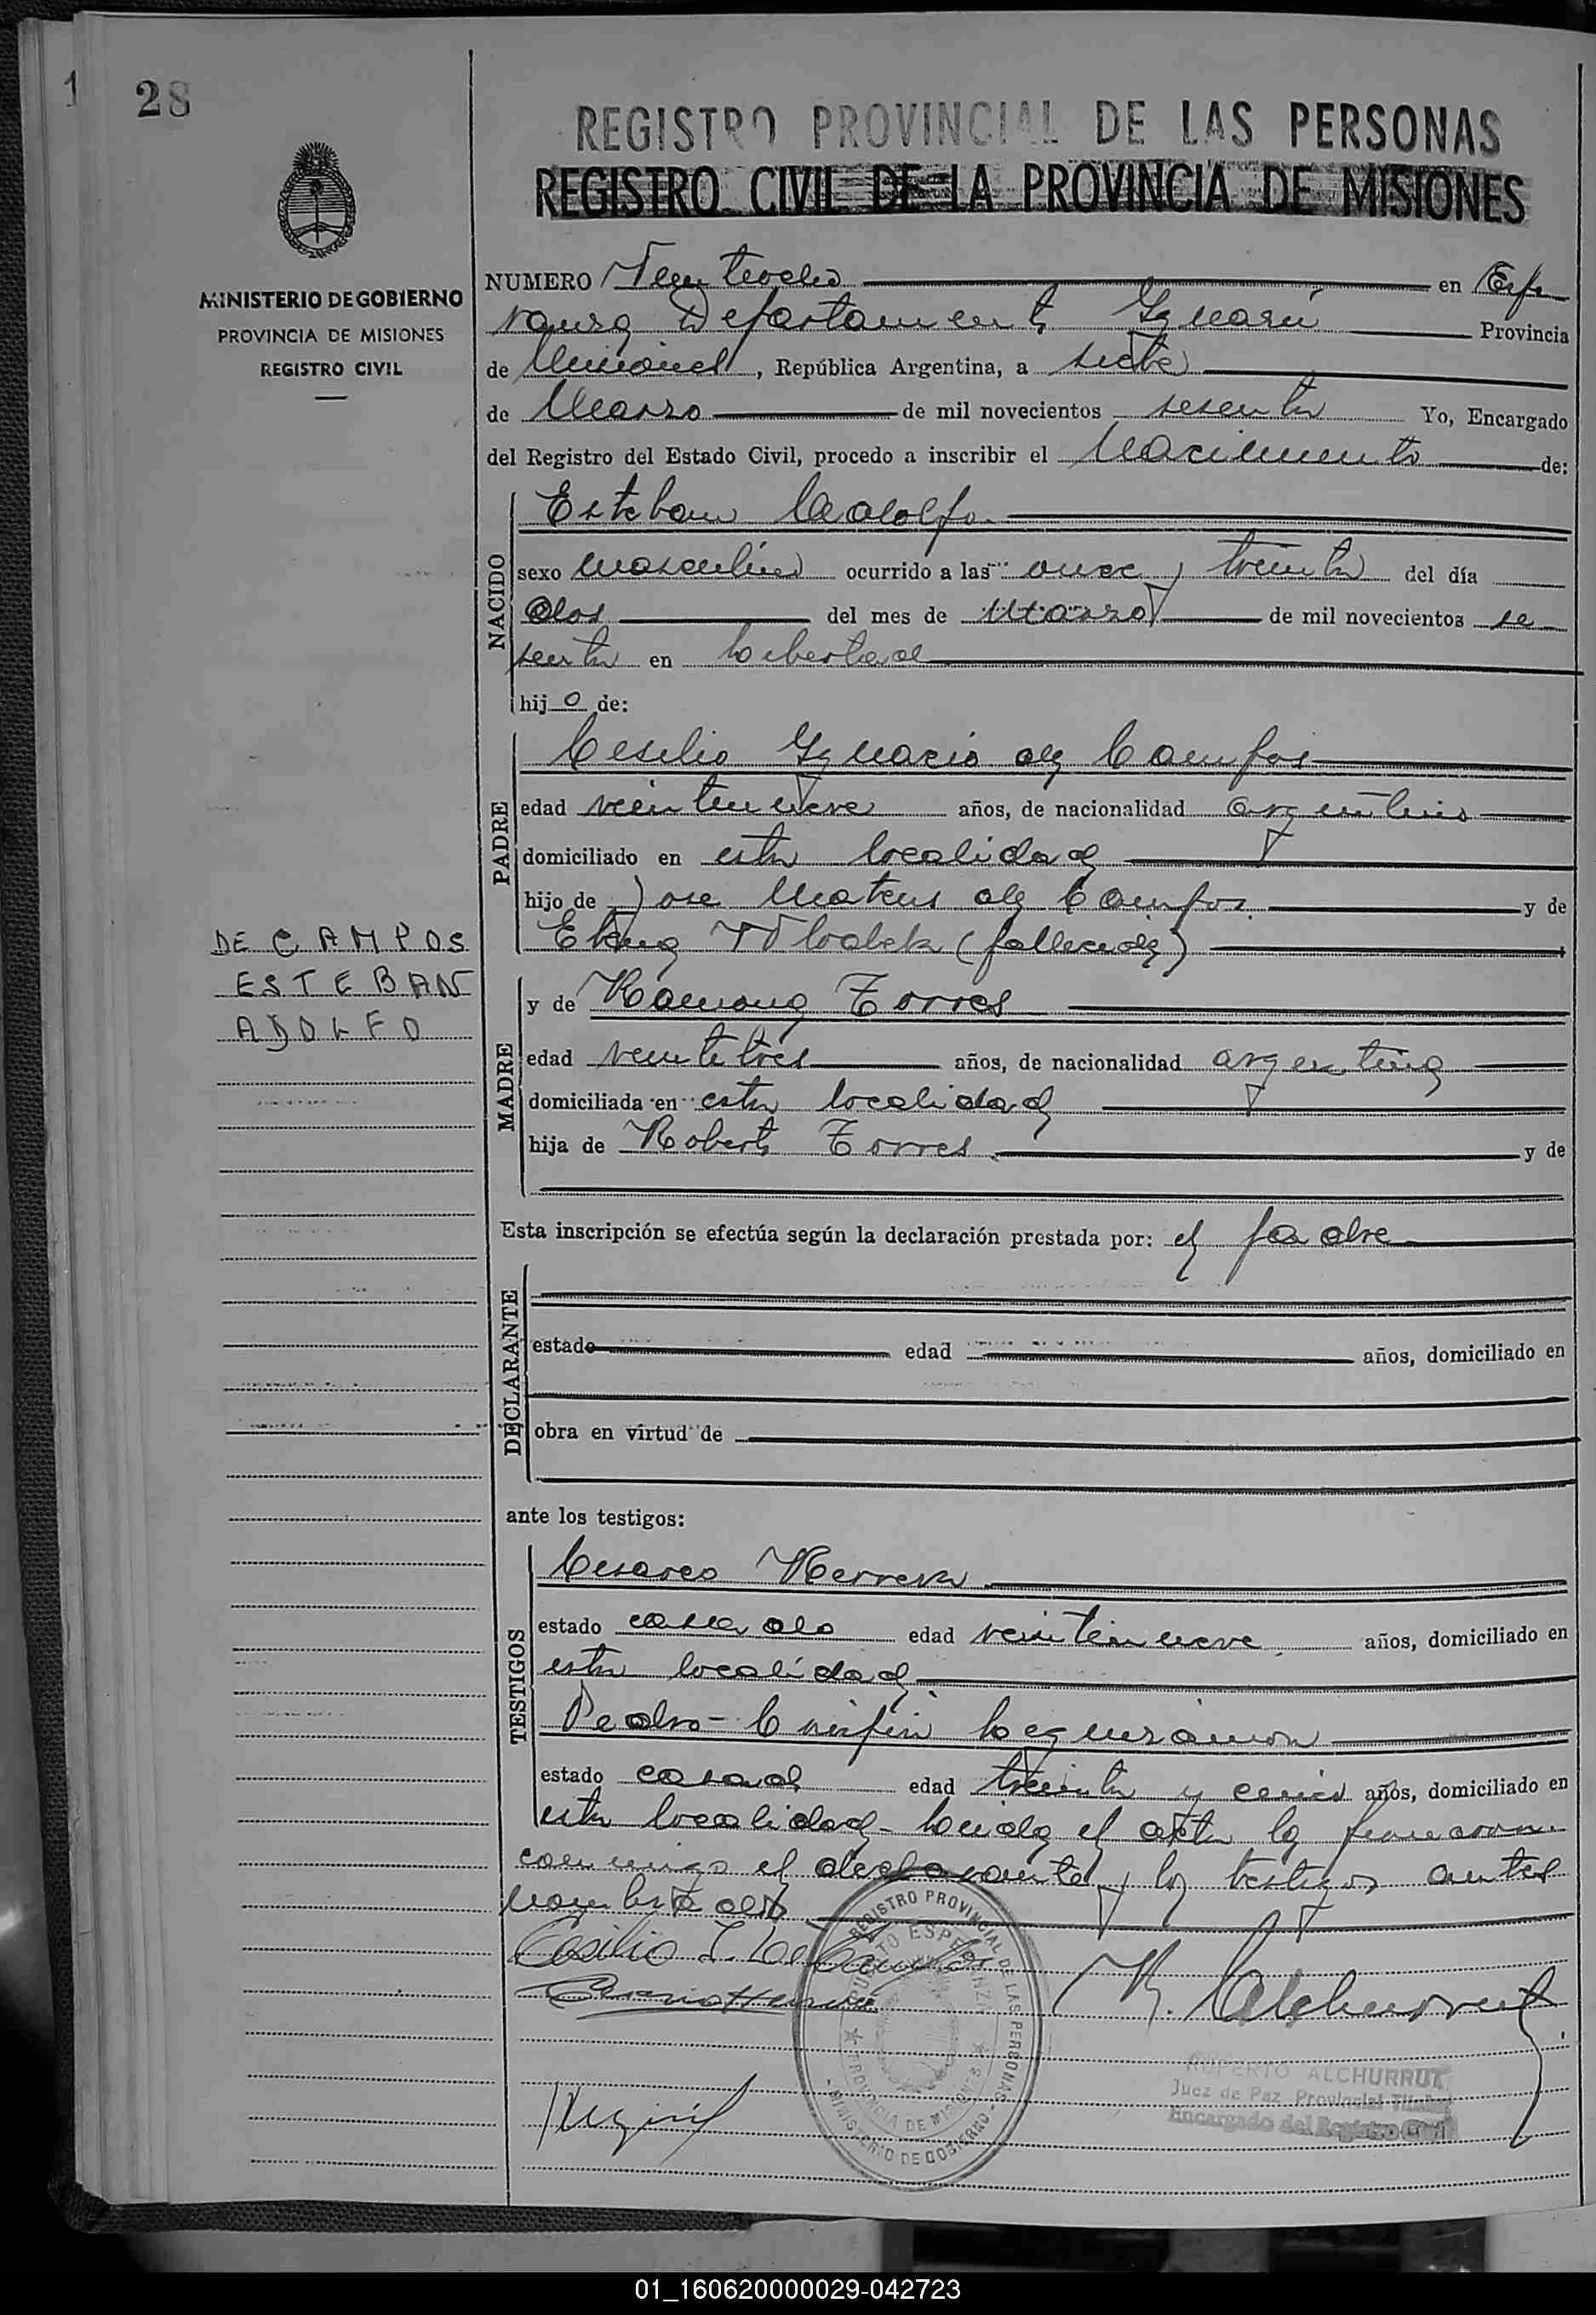 1
28
REGISTRO PROVINCIAL DE LAS PERSONAS
REGISTRO CIVIL DE LA PROVINCIA DE MISIONES
MINISTERIO DE GOBIERNO
PROVINCIA DE MISIONES
REGISTRO CIVIL
NUMERO Veintiocho en Espe
ranza Departamento Iguazú Provincia
de Misiones, República Argentina, a siete
de Marzo de mil novecientos sesenta Yo, Encargado
del Registro del Estado Civil, procedo a inscribir el Nacimiento de:
NACIDO
Esteban Adolfo
sexo masculino ocurrido a las once y treinta del día
dos del mes de Marzo de mil novecientos se
senta en Libertad
hijo de:
PADRE
Cesilio Ignacio de Campos
edad veintinueve años, de nacionalidad argentino
domiciliado en esta localidad
hijo de Jose Mateus de Campos y de
(fallecida)
DE CAMPOS
ESTEBAN
ADOLFO
MADRE
y de Ramona Torres
edad veintitres años, de nacionalidad argentina
domiciliada en esta localidad
hija de Roberto Torres y de
Esta inscripción se efectúa según la declaración prestada por: el padre
DECLARANTE
estado edad años, domiciliado en
obra en virtud de
ante los testigos:
TESTIGOS
Cesareo Herrera
estado casado edad veintinueve años, domiciliado en
esta localidad
Pedro Crispin Leguizamon
estado casado edad treinta y años, domiciliado en
esta localidad - Leida el acta la firmaron
conmigo el declarante y los testigos antes
nombrados
Cesilio I. De Campos
R. Alchurrut
REGISTRO PROVINCIAL DE LAS PERSONAS
PUERTO ESPERANZA
PROVINCIA DE MISIONES
MINISTERIO DE GOBIERNO
RUPERTO ALCHURRUT
Juez de Paz Provincial Titular
Encargado del Registro Civil
01_160620000029-042723